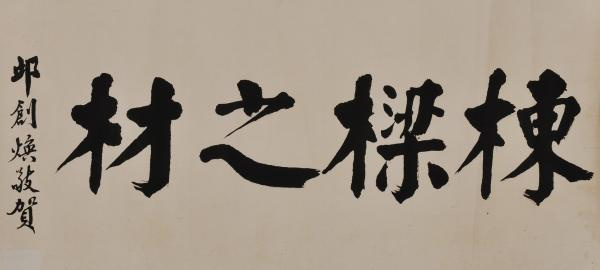 棟樑之材
邱創煥敬賀